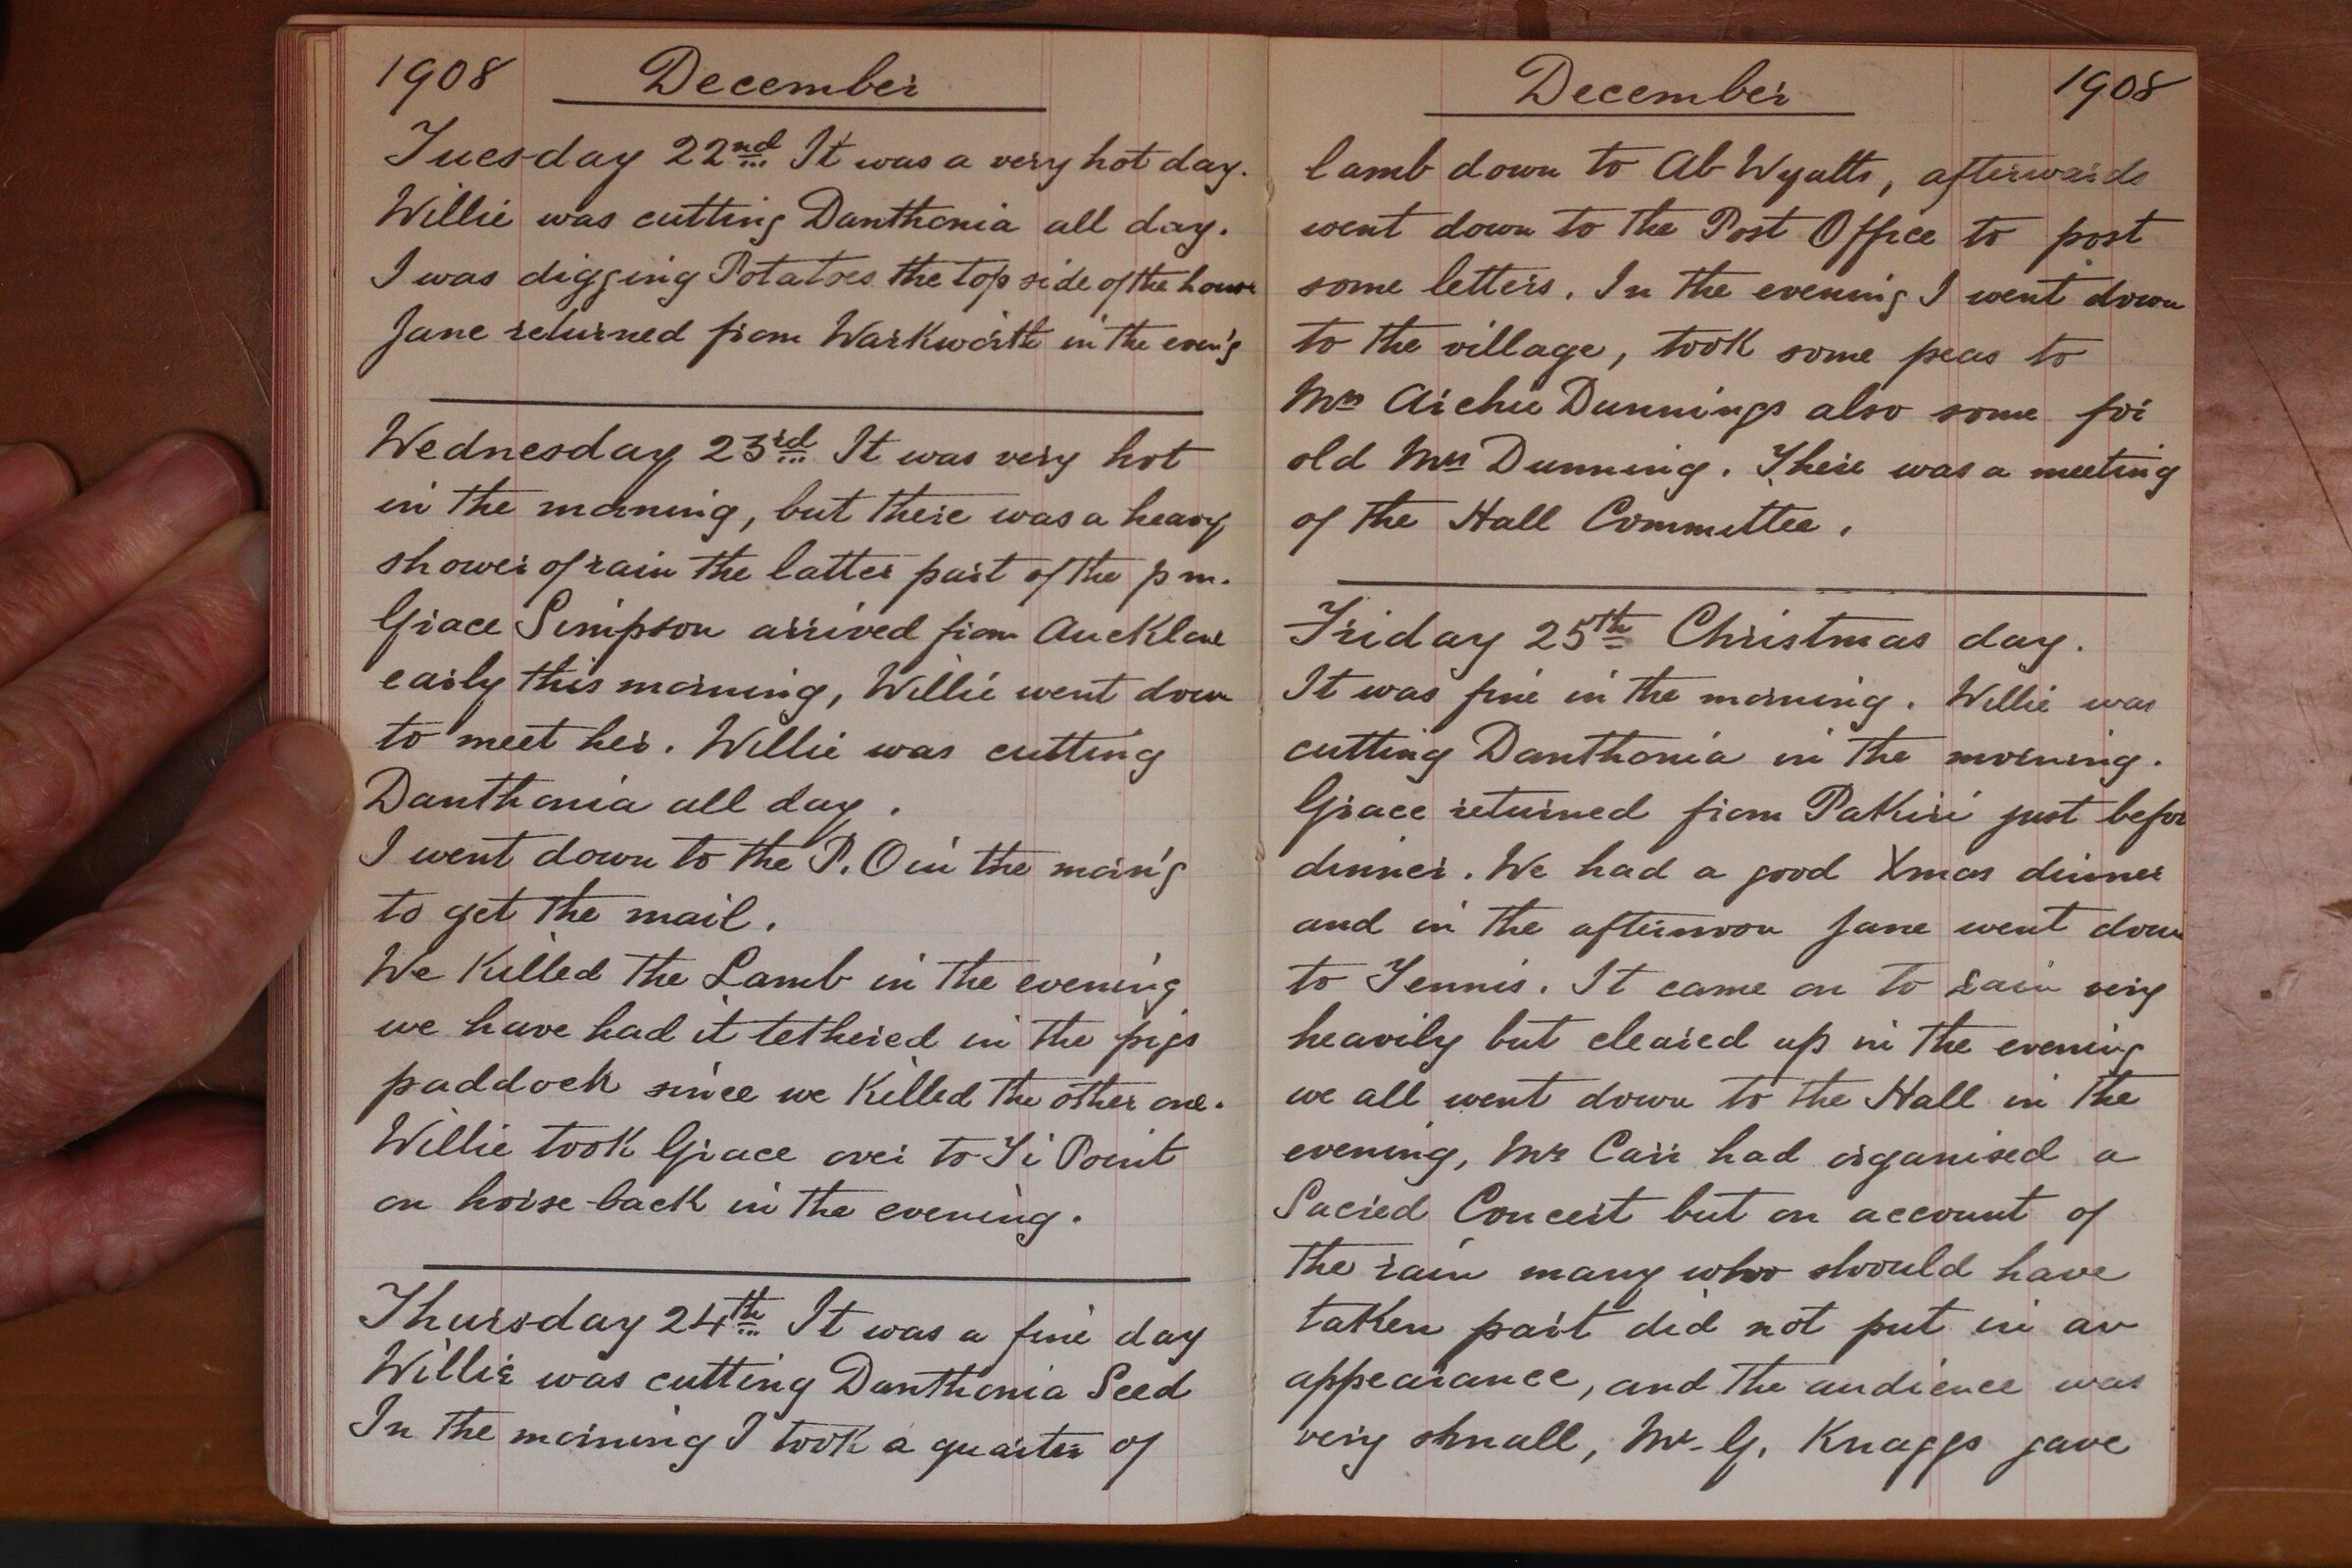 1908 December
Tuesday 22nd It was a very hot day.
Willie was cutting Danthonia all day.
I was digging Potatoes the top side of the house
Jane returned from Warkworth in the even'g
Wednesday 23rd It was very hot
in the morning, but there was a heavy
shower of rain the latter part of the p m.
Grace Simpson arrived from Auckland
early this morning, Willie went down
to meet her. Willie was cutting
Danthonia all day.
I went down to the P.O in the morn'g
to get the mail.
We Killed the Lamb in the evening
we have had it tethered in the pigs
paddock since we Killed the other one.
Willie took Grace over to Ti Point
on horse-back in the evening.
Thursday 24th It was a fine day
Willie was cutting Danthonia Seed
In the morning I took a quarter of
December 1908
lamb down to Ab Wyatts, afterwards
went down to the Post Office to post
some letters. In the evening I went down
to the village, took some peas to
Mrs Archie Dunnings also some for
old Mrs Dunning. There was a meeting
of the Hall Committee.
Friday 25th Christmas day.
It was fine in the morning. Willie was
cutting Danthonia in the morning.
Grace returned from Pakiri just before
dinner. We had a good Xmas dinner
and in the afternoon Jane went down
to Tennis. It came on to rain very
heavily but cleared up in the evening
we all went down to the Hall in the
evening, Mr Carr had organised a
Sacred Concert but on account of
the rain many who should have
taken part did not put in an
appearance, and the audience was
very small, Mr. G. Knaggs gave